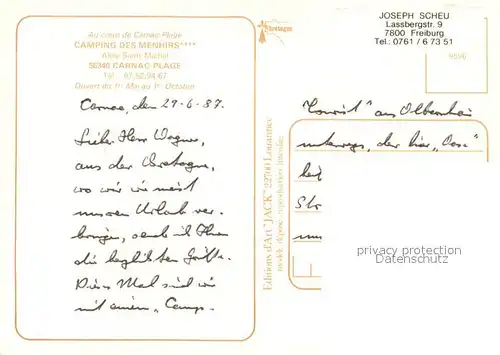 Au coeur de Carnac Plage
CAMPING DES MENHIRS****
Allée Saint-Michel
56340 CARNAC PLAGE
Tél. 97.52.94.67
Ouvert du 1er Mai au 1er Octobre
Carnac, den 29.6.87.
Lieber Herr Wagner,
aus der Bretagne,
wo wir wie meist
unseren Urlaub ver-
bringen, sende ich Ihnen
die herzlichsten Grüße.
Dieses Mal sind wir
mit einem "Camp-
Editions d'Art "JACK" 22700 Louannec
modèle déposé, reproduction interdite
Bretagne
JOSEPH SCHEU
Lassbergstr. 9
7800 Freiburg
Tel.: 0761 / 6 73 51
9596
Tourist" aus
unterwegs, der hier
privacy protection
ansichtskarten